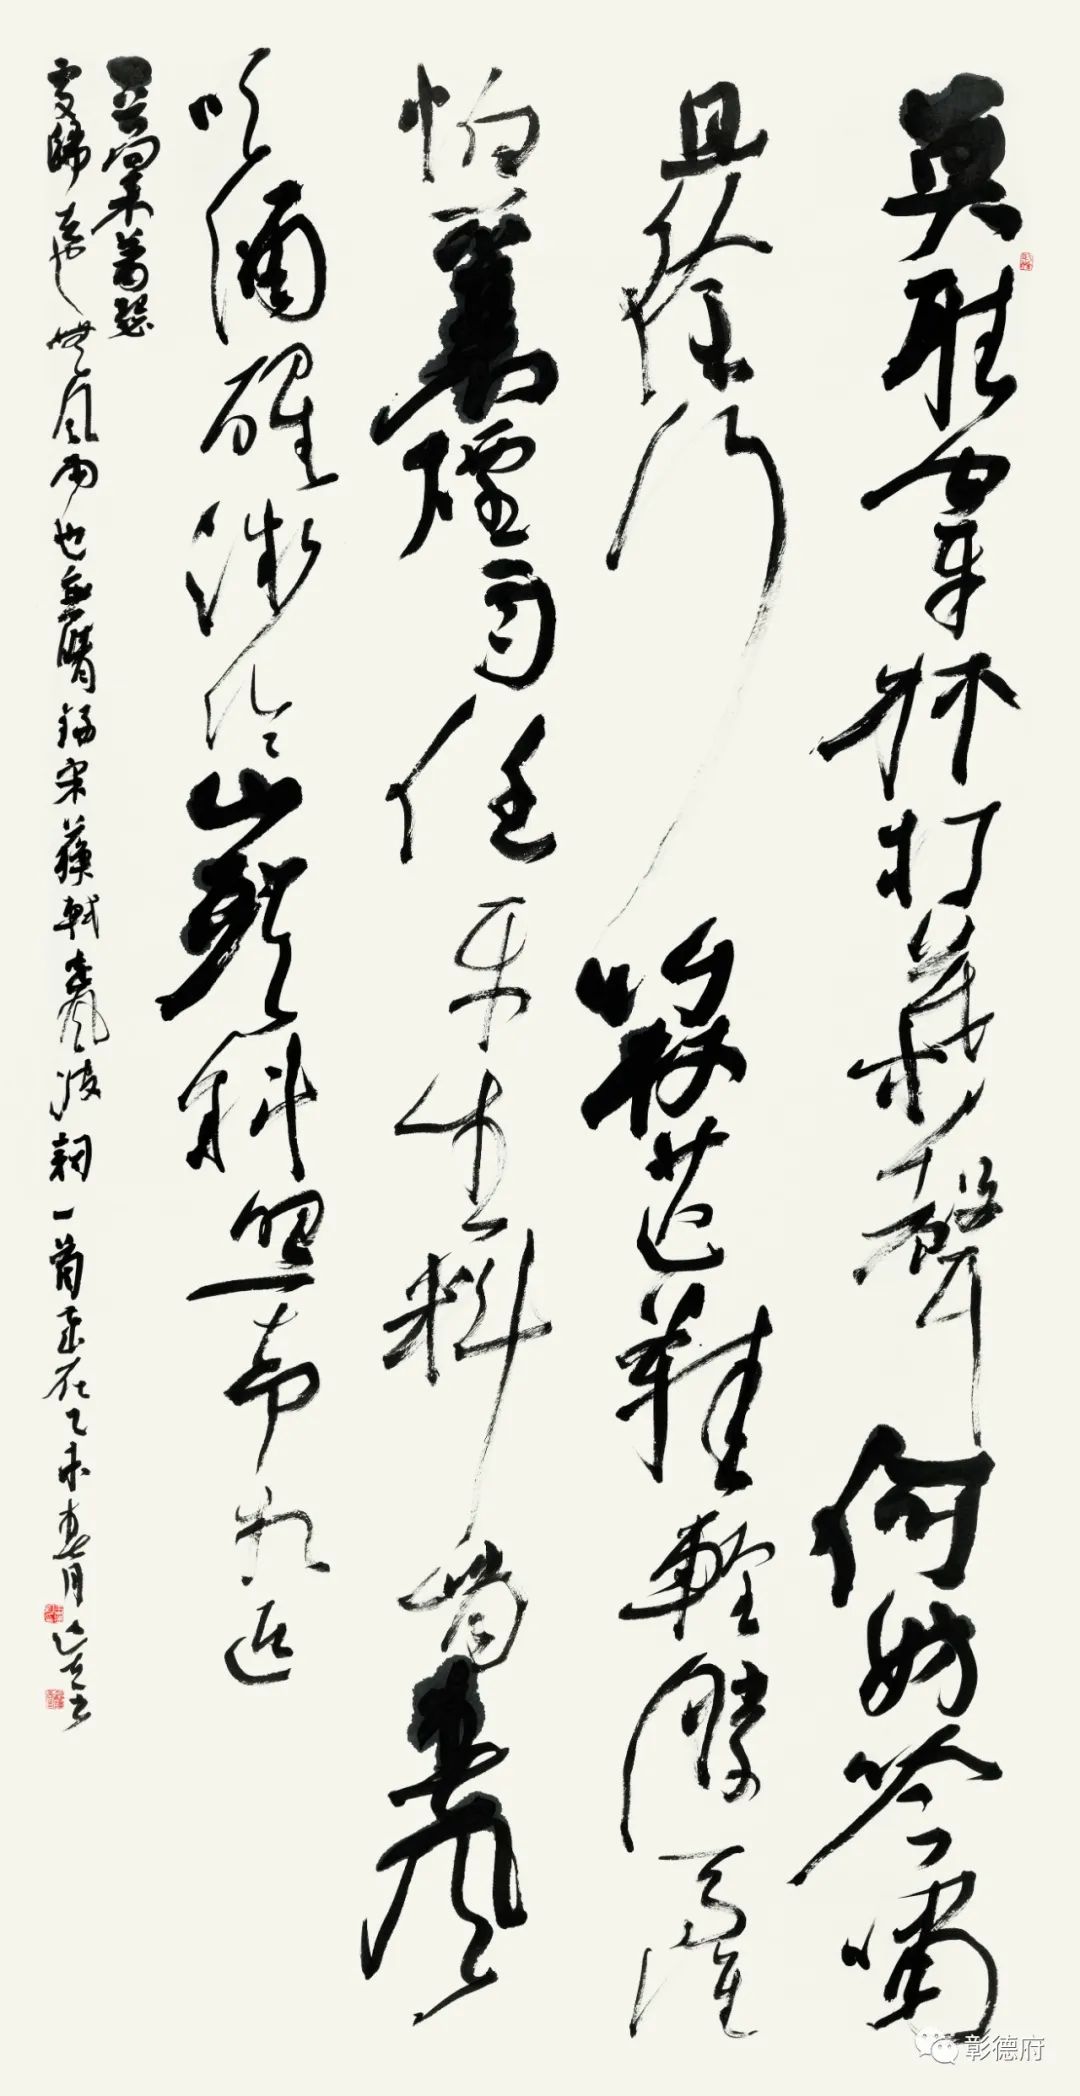 莫聽穿林打葉聲何妨吟嘯
且徐行竹杖芒鞋輕勝馬誰
怕一蓑煙雨任平生料峭春風
吹酒醒微冷山頭斜照却相迎
回首向來蕭瑟
處歸去也無風雨也無晴錄宋蘇軾定風波詞一首歲在乙未春月
彰德府